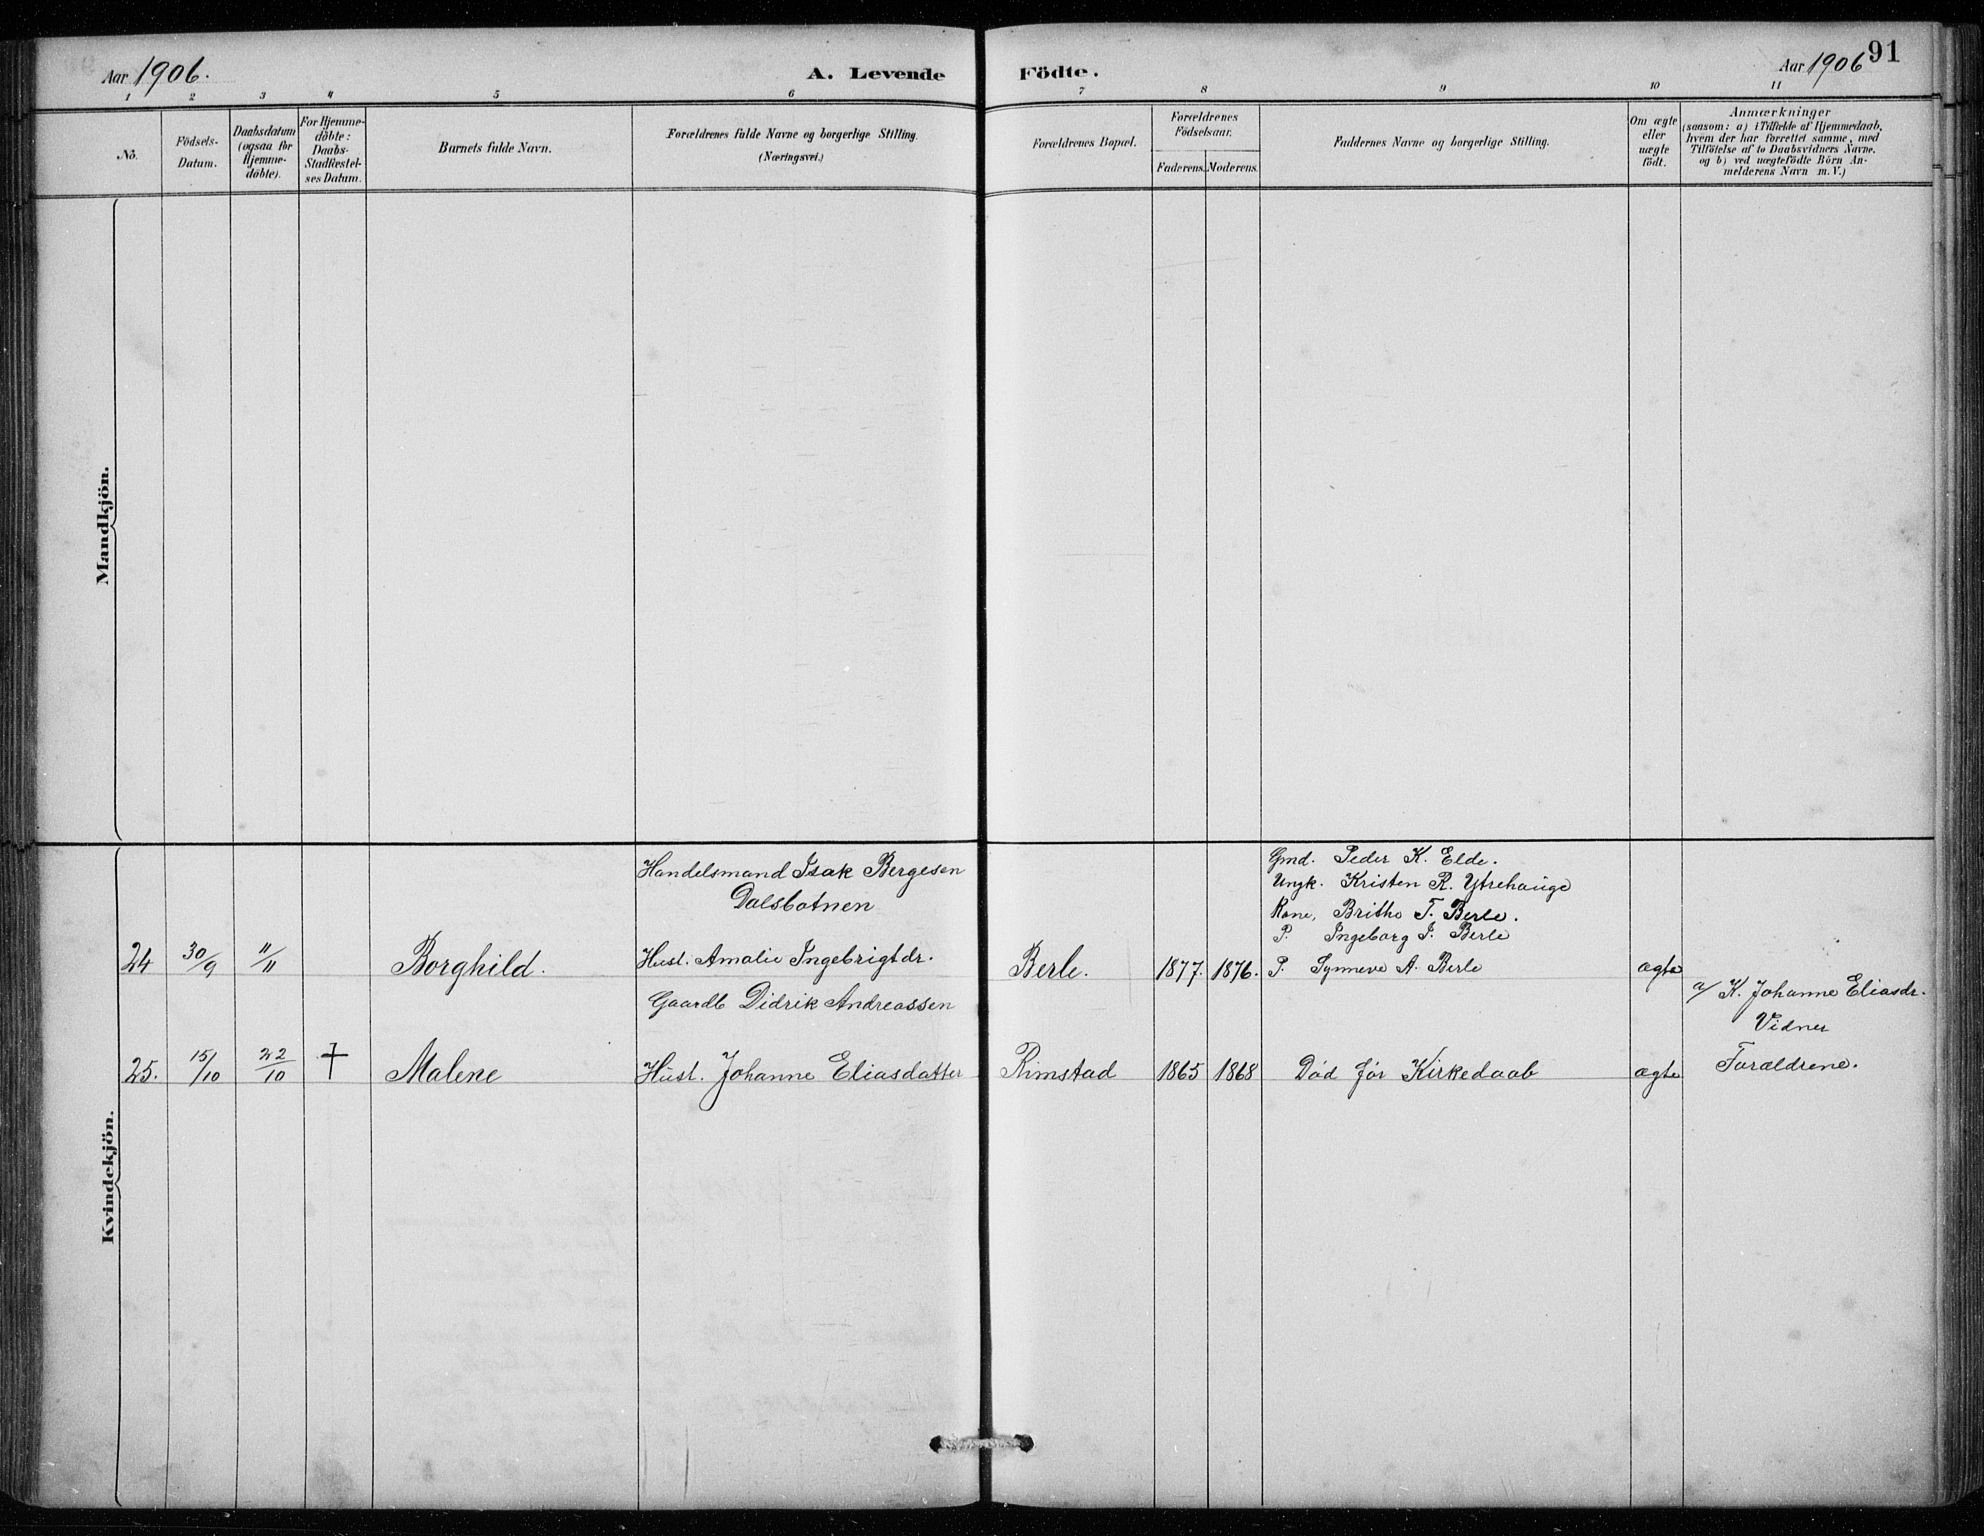 Aar 1906.
A. Levende Födte.
Aar 1906
91
1 2 3 4 5 6 7 8 9 10 11
No.
Födsels-
Datum.
Daabsdatum
(ogsaa for
Hjemme-
döbte).
For Hjemme-
döbte:
Daabs-
Stadfæstel-
ses Datum.
Barnets fulde Navn.
Forældrenes fulde Navne og borgerlige Stilling.
(Næringsvei.)
Forældrenes Bopæl.
Forældrenes
Födselsaar.
Faderens. Moderens.
Faddernes Navne og borgerlige Stilling.
Om ægte
eller
uægte
födt.
Anmærkninger
(saasom: a) i Tilfælde af Hjemmedaab,
hvem der har forrettet samme, med
Tilföielse af to Daabsvidners Navne.
og b) ved uægtefödte Börn An-
melderens Navn m. V.)
Mandkjön.
Kvindekjön.
Handelsmand Isak Bergesen
Dalsbotnen
24 30/9 11/11 Borghild. Hust. Amalie Ingebrigtdr. Berle. 1877. 1876.
Gmd. Peder K. Elde.
Ungk. Kristen R. Ytrehauge
Kone, Britho T. Berle.
P. Ingeborg I. Berle
P. Synneve A. Berle
ægte
Gaardb Didrik Andreassen
25. 15/10 22/10 † Malene Hust. Johanne Eliasdatter Rimstad 1865 1868 Död før Kirkedaab ægte
a/ K. Johanne Eliasdr.
Vidner
Forældrene.